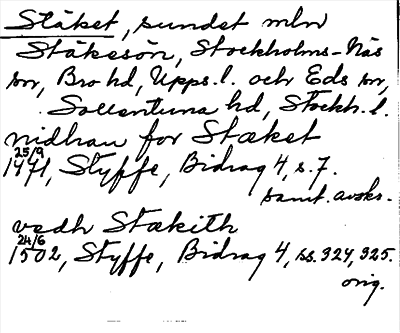 Stäket, sundet mln
Stäksön, Stockholms-Näs
sn, Bro hd, Upps. l. och Eds sn,
Sollentuna hd, Stockh. l.
nidhan for Stæket
25/9
1471, Styffe, Bidrag 4, s. 7.
samt. avskr.
vedh Stækith
24/6
1502, Styffe, Bidrag 4, ss. 324, 325.
orig.